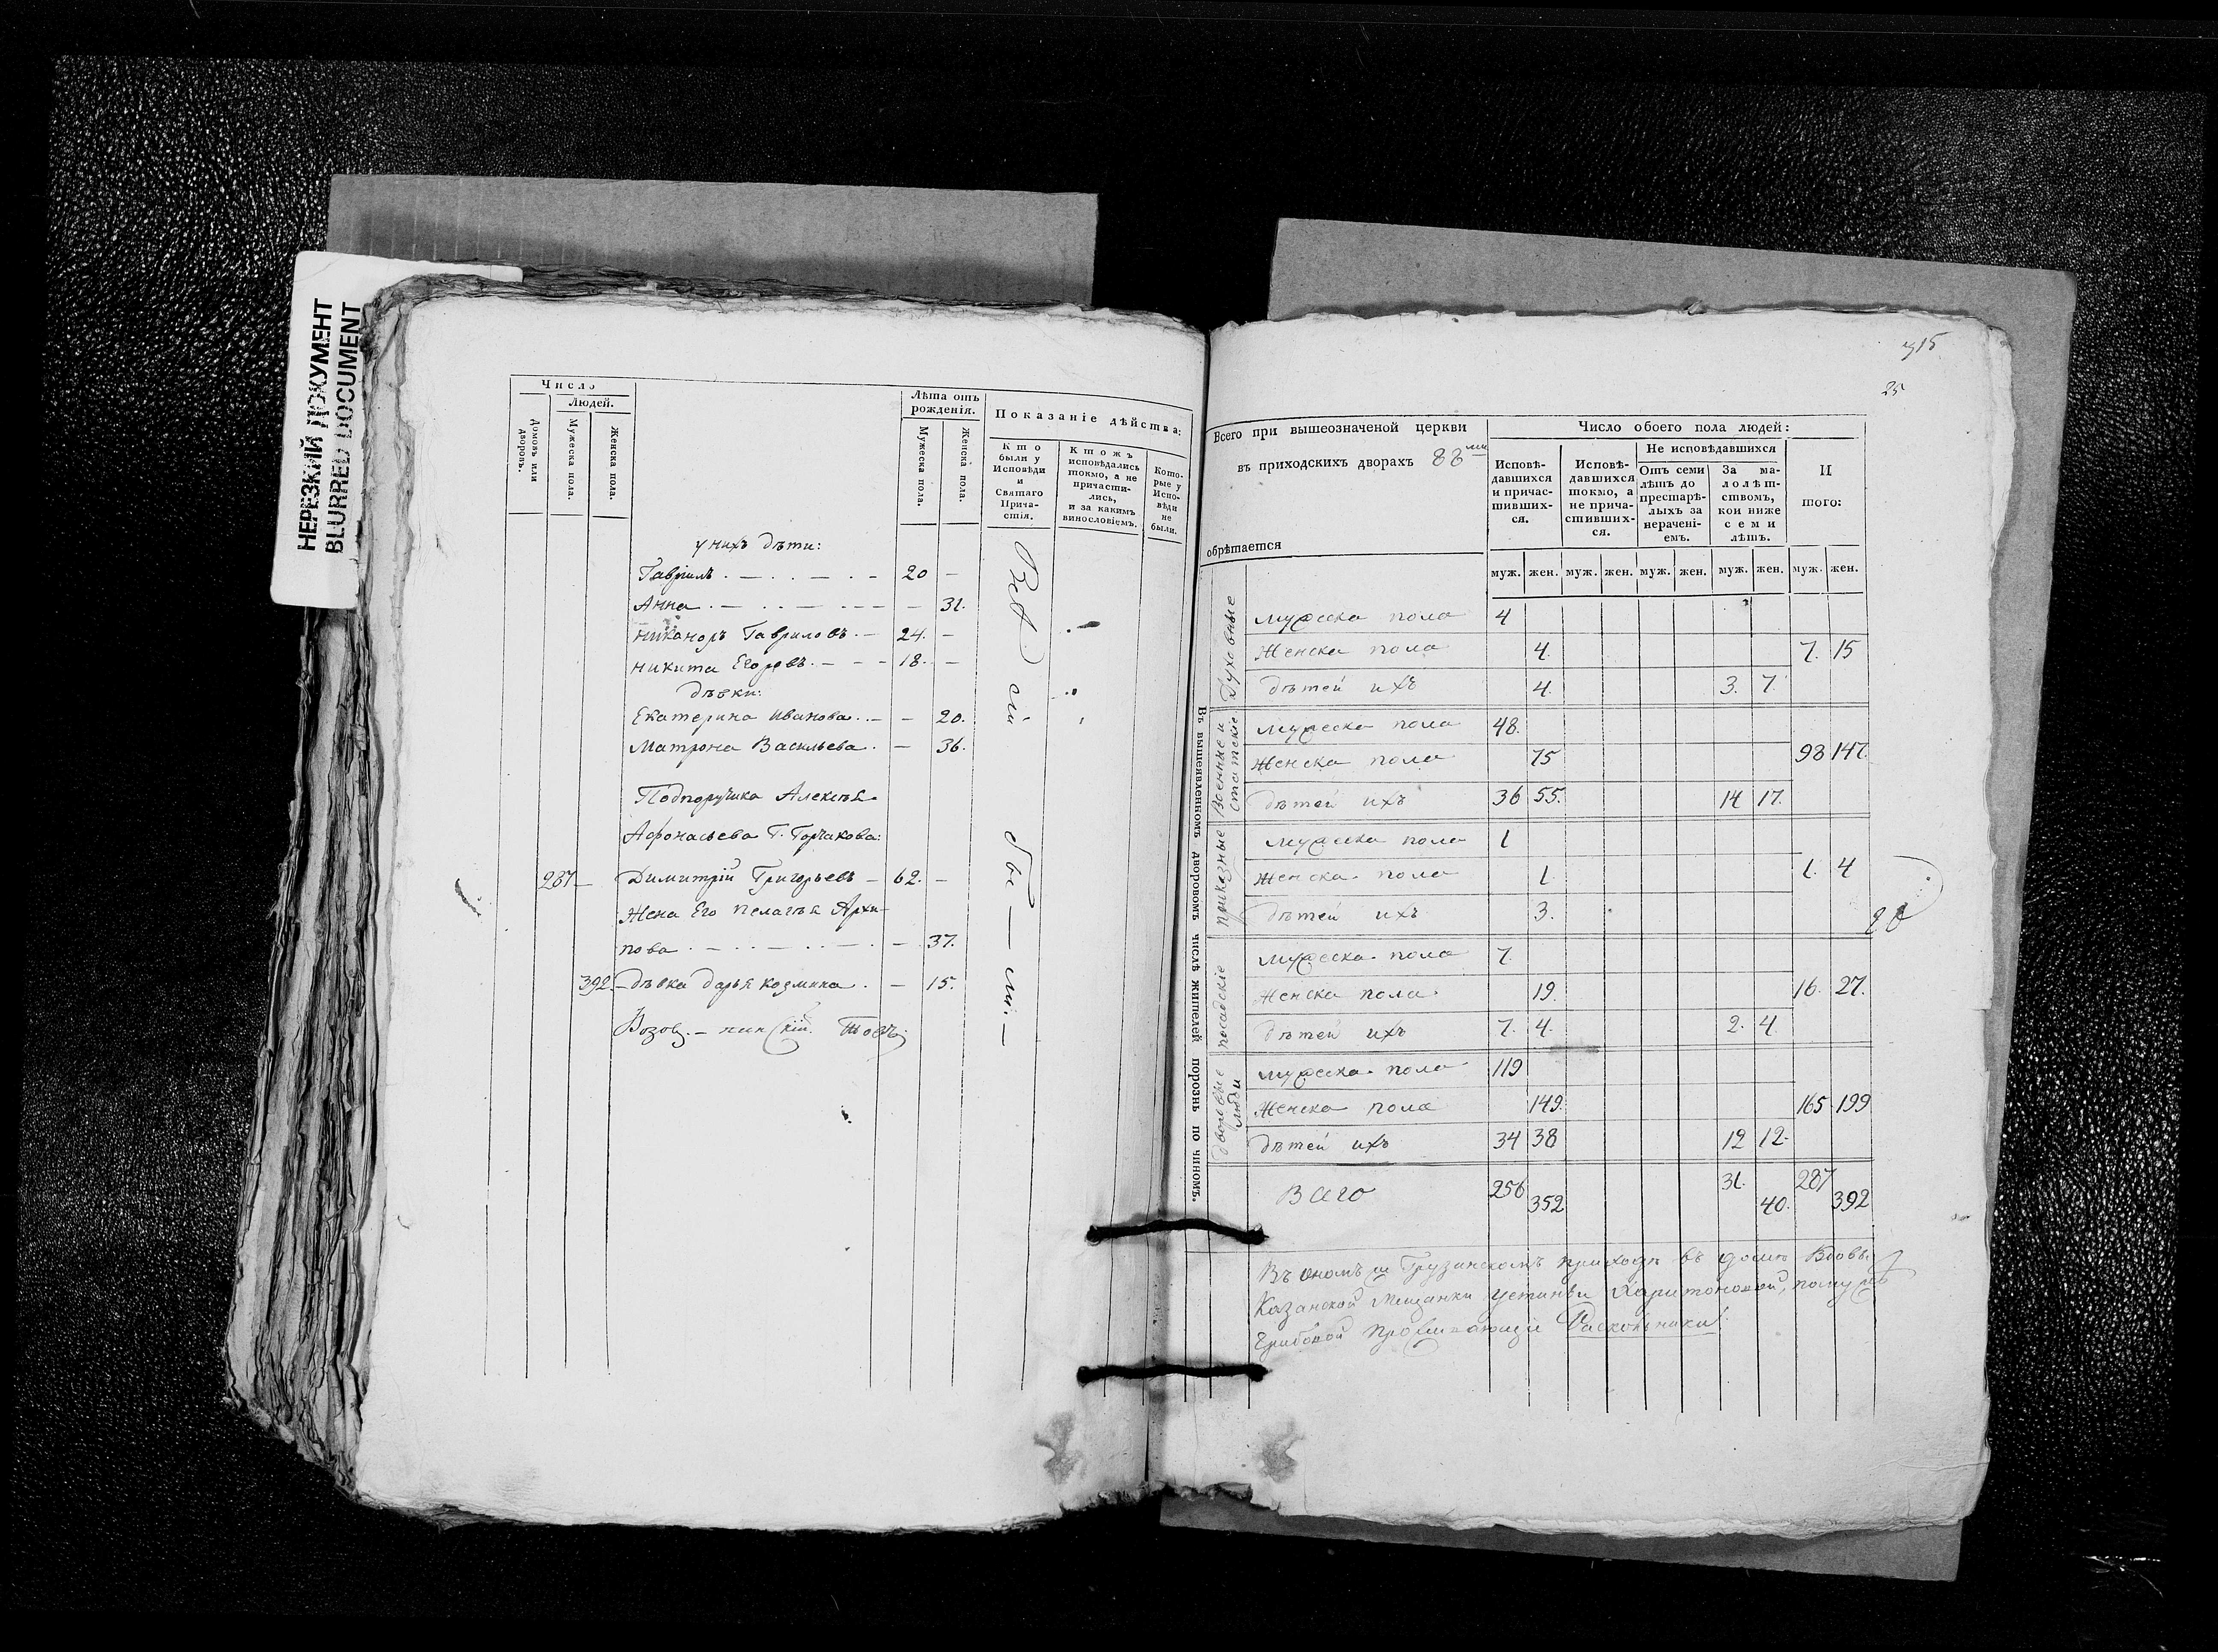 НЕРЕЗКИЙ ДОКУМЕНТ
BLURRED DOCUMENT
Число
Людей.
Домовъ или дворовъ.
Мужеска пола.
Женска пола.
Лѣта отъ рожденія.
Мужеска пола.
Женска пола.
Показаніе дѣйства:
Кто были у Исповѣди и Святаго Причастія.
Ктожъ исповѣдались токмо, а не причастились, и за какимъ винословіемъ.
Которые у Исповѣди не были.
у нихъ дѣти:
Гавріилъ 20 —
Анна — 31.
Никаноръ Гавриловъ 24. —
Никита Егоровъ 18. —
дѣвки:
Екатерина Иванова — 20.
Матрона Васильева — 36.
Подпоручика Алексѣя
Афонасьева Г. Горчакова:
287 — Димитрій Григорьевъ 62. —
Жена Его Пелагѣя Архи-
пова — 37.
392. — дѣвка Дарья Козмина — 15.
Всѣ сіи бы — ли. —
315
25
Всего при вышеозначеной церкви
въ приходскихъ дворахъ 88ми
обрѣтается
Число обоего пола людей:
Исповѣдавшихся и причастившихся.
Исповѣдавшихся токмо, а не причастившихся.
Не исповѣдавшихся
Отъ семи лѣтъ до престарѣлыхъ за нераченіемъ.
За малолѣтствомъ, кои ниже семи лѣтъ.
И того:
муж. жен. муж. жен. муж. жен. муж. жен. муж. жен.
Въ вышеявленномъ дворовомъ числѣ жителей порознь по чиномъ.
Духовные
Мужеска пола 4
Женска пола 4. 7. 15
дѣтей ихъ 4. 3. 7.
Военные и статскіе
Мужеска пола 48.
Женска пола 75 98 147.
дѣтей ихъ 36 55. 14 17.
приказные
Мужеска пола 1
Женска пола 1. 1. 4
дѣтей ихъ 3.
посадскіе
Мужеска пола 7.
Женска пола 19. 16. 27.
дѣтей ихъ 7. 4. 2. 4.
дворовые люди
Мужеска пола 119
Женска пола 149. 165 199
дѣтей ихъ 34 38 12 12.
Всего 256 352 31. 40. 287 392
Въ ономъ Грузинскомъ приходѣ въ домѣ Вдовы
Казанской Мещанки Устиньи Харитоновой,
раскольники